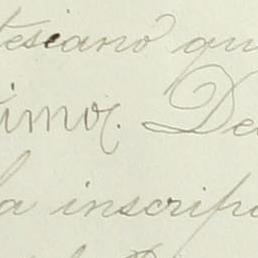 tesiano qu
imos. De
la inscrip